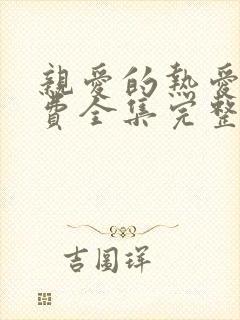 親愛的熱愛
費全集完整
吉圖琩